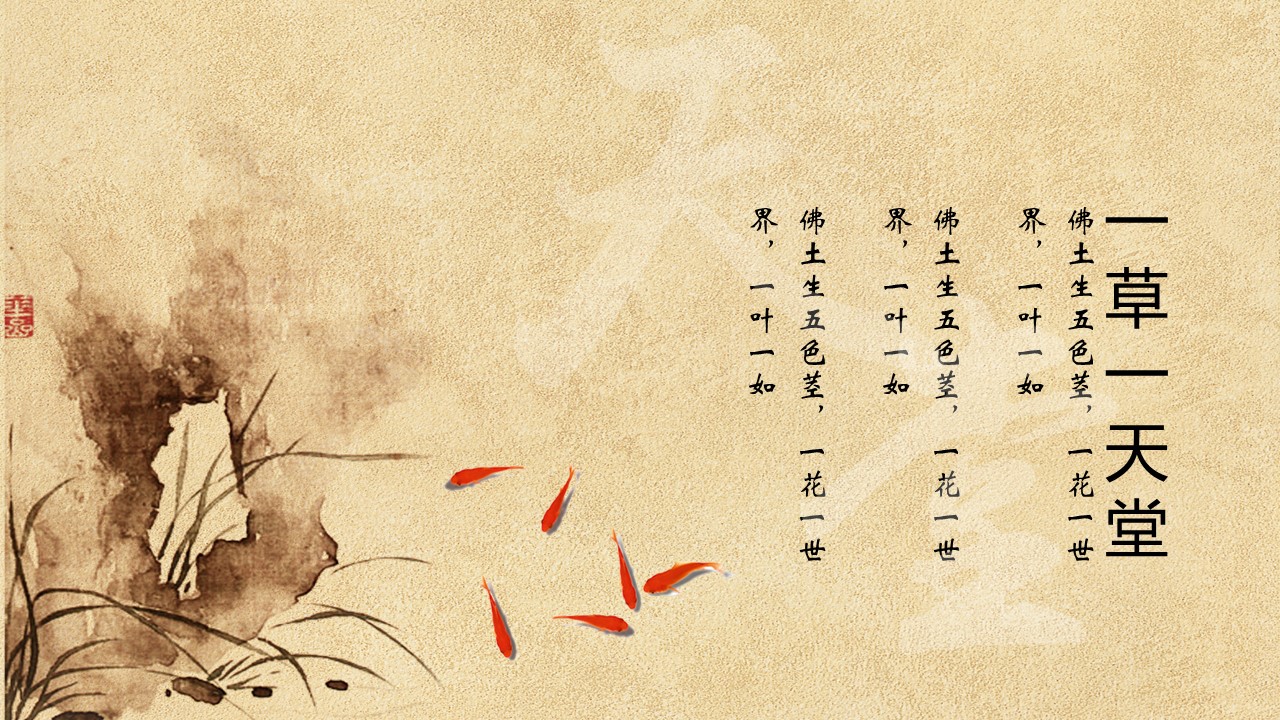 一草一天堂
佛土生五色茎，一花一世
界，一叶一如
佛土生五色茎，一花一世
界，一叶一如
佛土生五色茎，一花一世
界，一叶一如
天堂